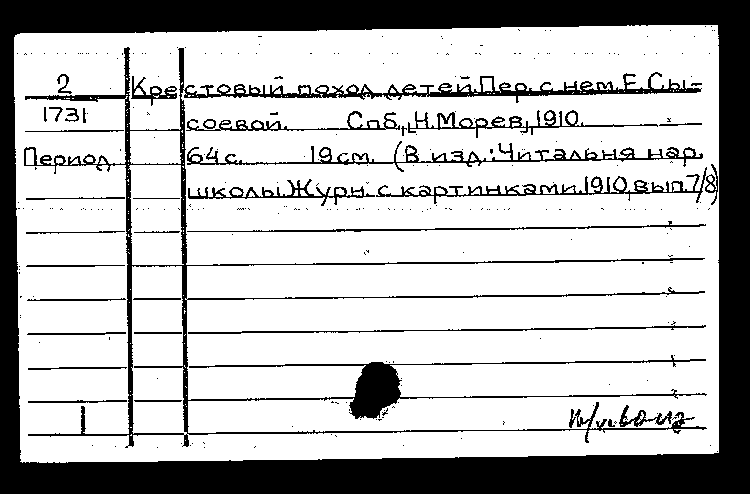 2 Крестовый поход детей. Пер. с нем. Е. Сы-
1731 соевой. Спб., "Н. Морев", 1910.
Период. 64 с. 19 см. (В изд.: Читальня нар.
школы. Журн. с картинками. 1910, вып. 7/8)
1